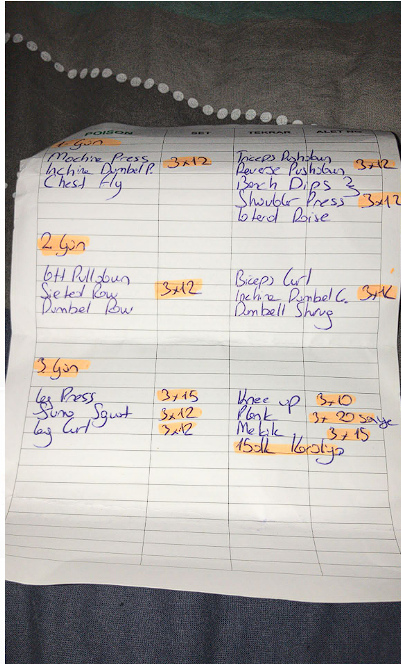 POISON SET TEKRAR ALET NO
1. Gün
Machine Press 3x12
Incline Dumbel P.
Chest Fly
Triceps Pushdown 3x12
Reverse Pushdown
Bench Dips
Shoulder Press 3x12
Lateral Raise
2. Gün
Lat Pulldown
Seated Row 3x12
Dumbel Row
Biceps Curl
Incline Dumbel C. 3x12
Dumbell Shrug
3. Gün
Leg Press 3x15
Sumo Squat 3x12
Leg Curl 3x12
Knee up 3x10
Plank 3x20 saniye
Mekik 3x15
15dk Kardiyo